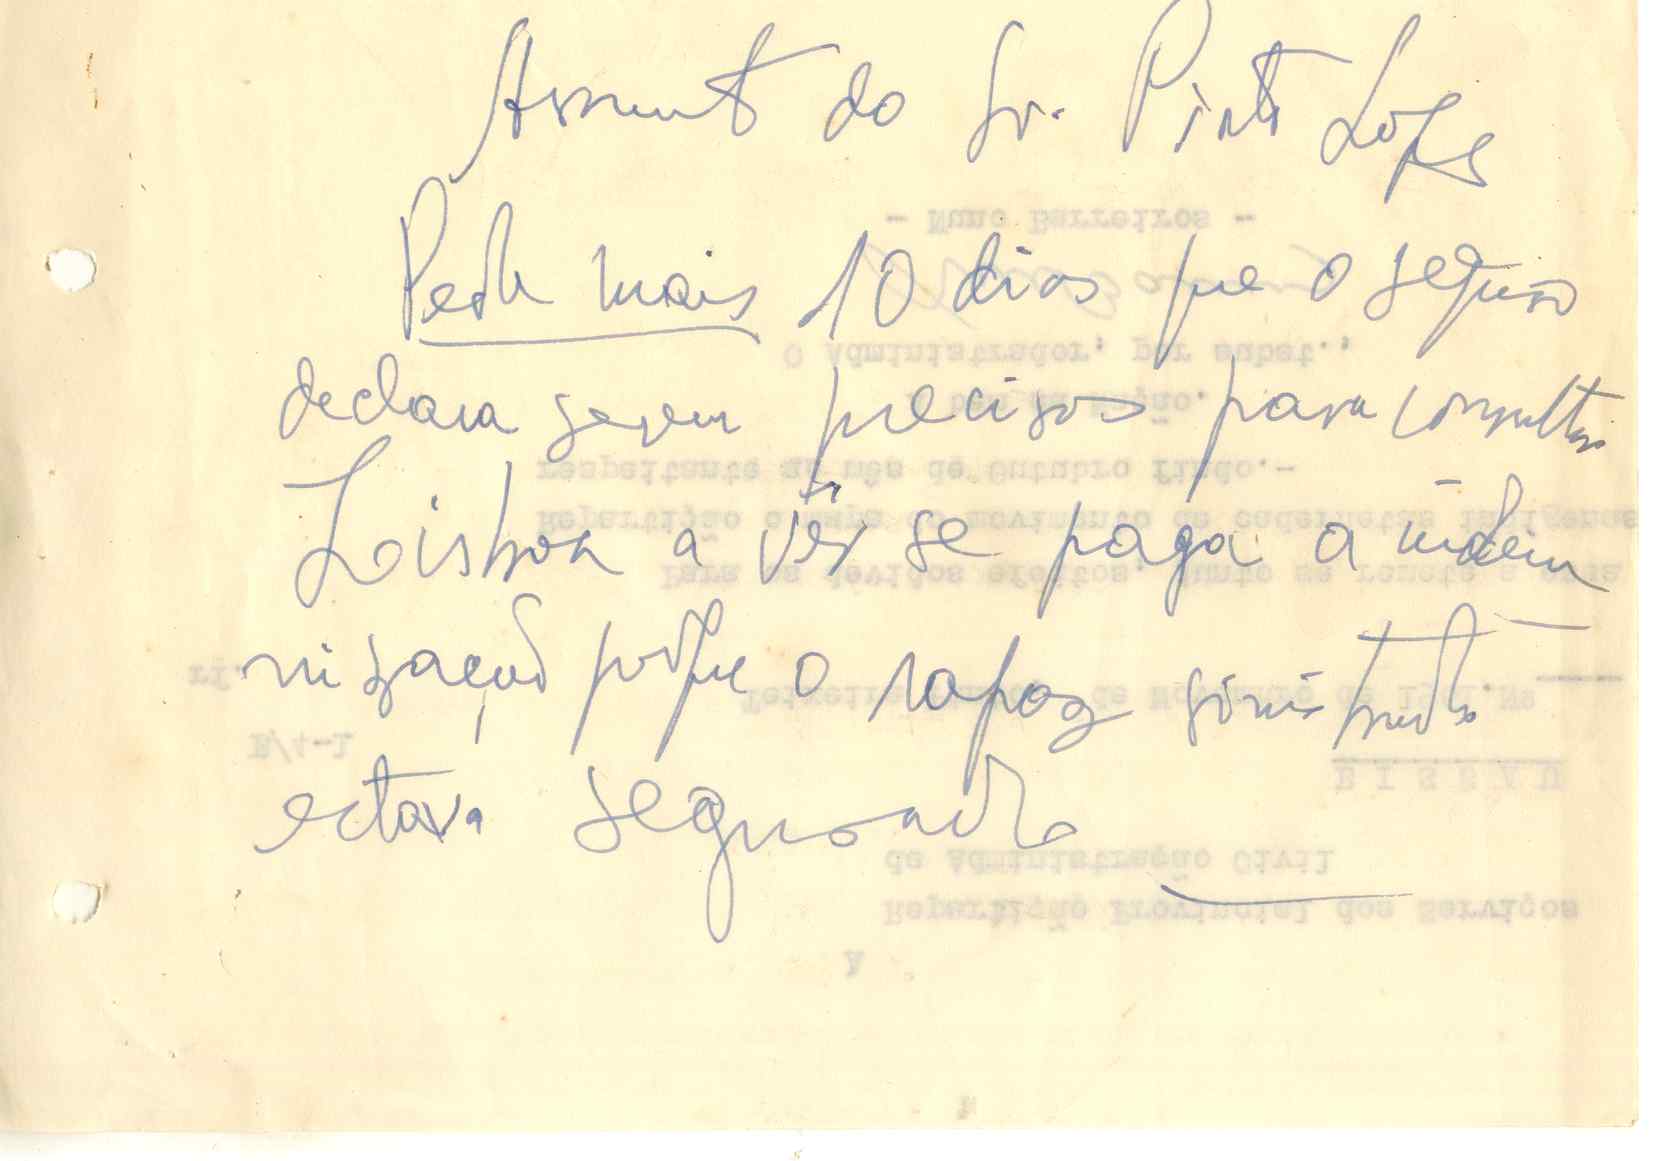 Assunto do Sr. Pinto Lopes
Pede mais 10 dias que o seguro
declara serem precisos para consultar
Lisboa a vêr se paga a indem
nização porque o rapaz sinistrado
estava segurado